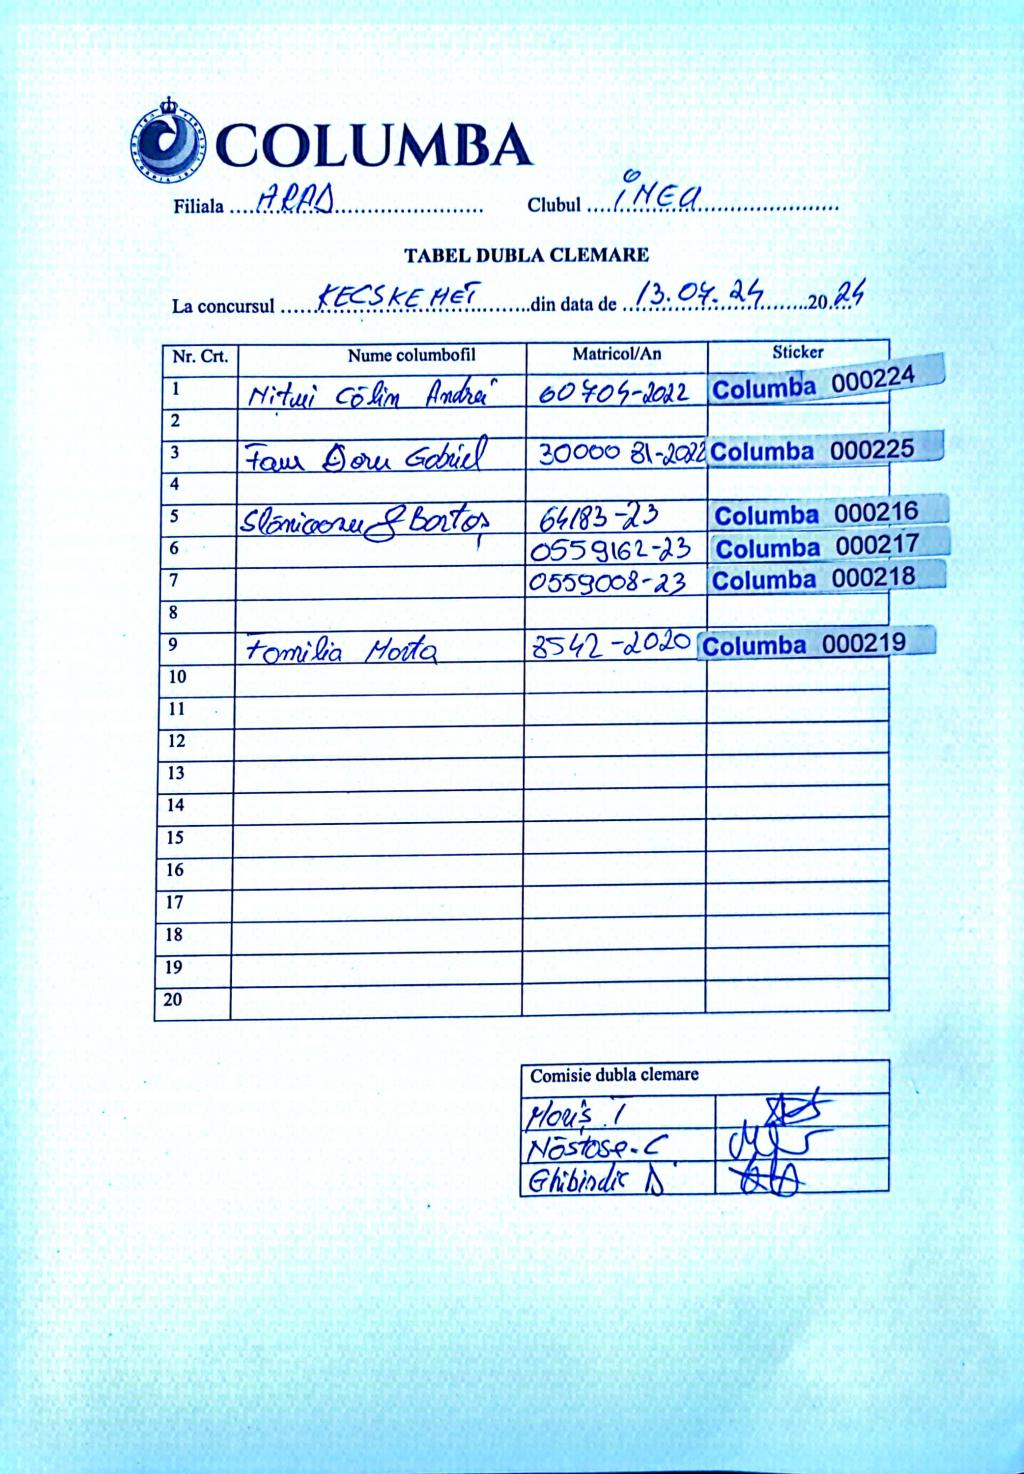 COLUMBA
Filiala ....ARAD.................... Clubul ....INEU....................
TABEL DUBLA CLEMARE
La concursul ......KECSKEMET........din data de ..13.07.24........20.24
Nr. Crt. Nume columbofil Matricol/An Sticker
1 Andrei 60704-2022 Columba 000224
2
3 Faur Doru Gabriel 3000081-2022 Columba 000225
4
5 & Bortoș 64183-23 Columba 000216
6 0559162-23 Columba 000217
7 0559008-23 Columba 000218
8
9 Familia Morta 8542-2020 Columba 000219
10
11
12
13
14
15
16
17
18
19
20
Comisie dubla clemare
T
Năstase C
Ghibindic D